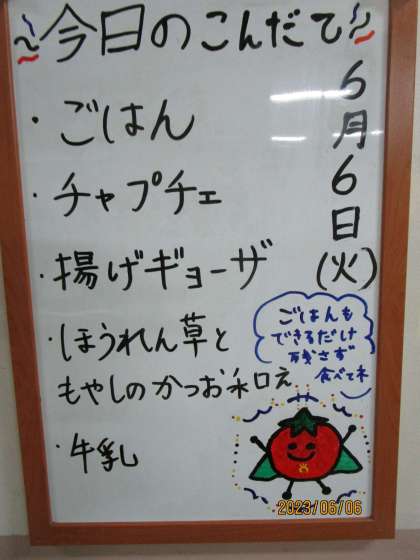 今日のこんだて
6月6日(火)
・ごはん
・チャプチェ
・揚げギョーザ
・ほうれん草と
もやしのかつお和え
・牛乳
ごはんも
できるだけ
残さず
食べてネ
2023/06/06